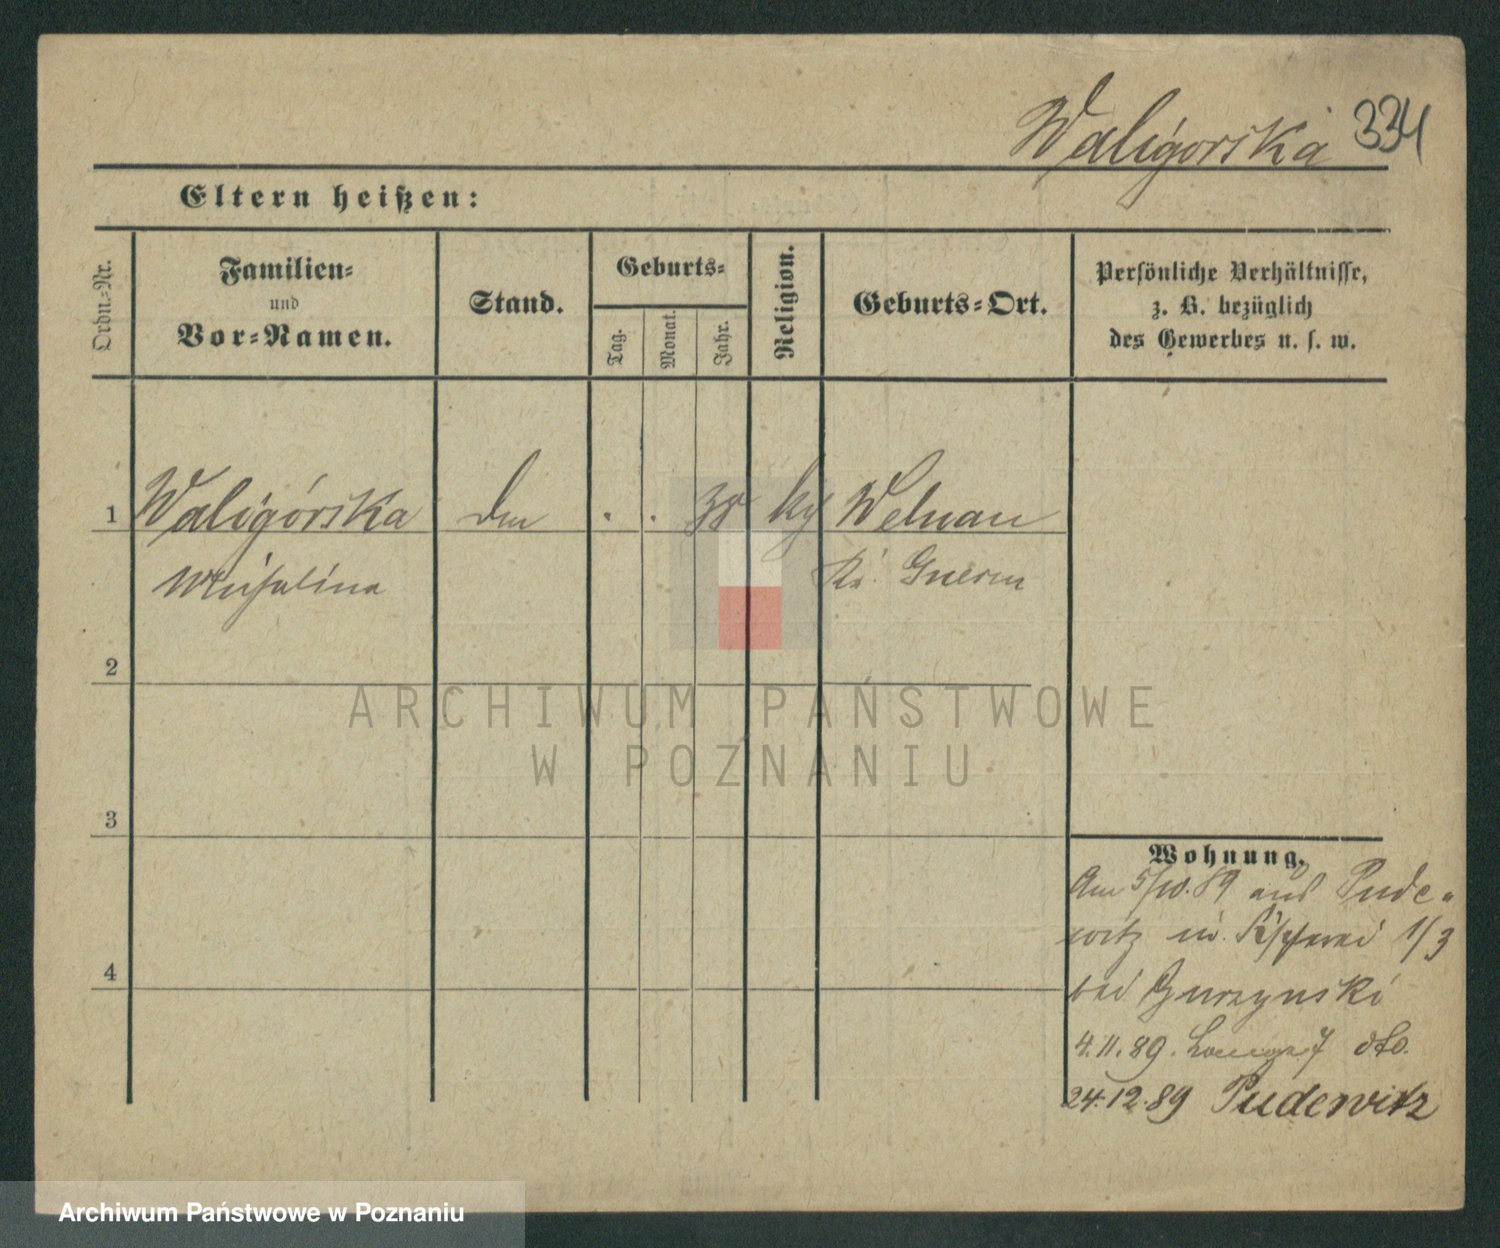 Waligorska 334
Eltern heißen:
Ordn.-Nr.
Familien-
und
Vor-Namen.
Stand.
Geburts-
Tag.
Monat.
Jahr.
Religion.
Geburts-Ort.
Persönliche Verhältnisse,
z. B. bezüglich
des Gewerbes u. s. w.
1 Waligórska . . Welnau
Michalina Kr. Gnesen
2
3
4
ARCHIWUM PAŃSTWOWE
W POZNANIU
Wohnung.
Am 5/10.89 aus Pude-
witz in 1/3
bei
4.11.89. 7 dto.
24.12.89 Pudewitz
Archiwum Państwowe w Poznaniu